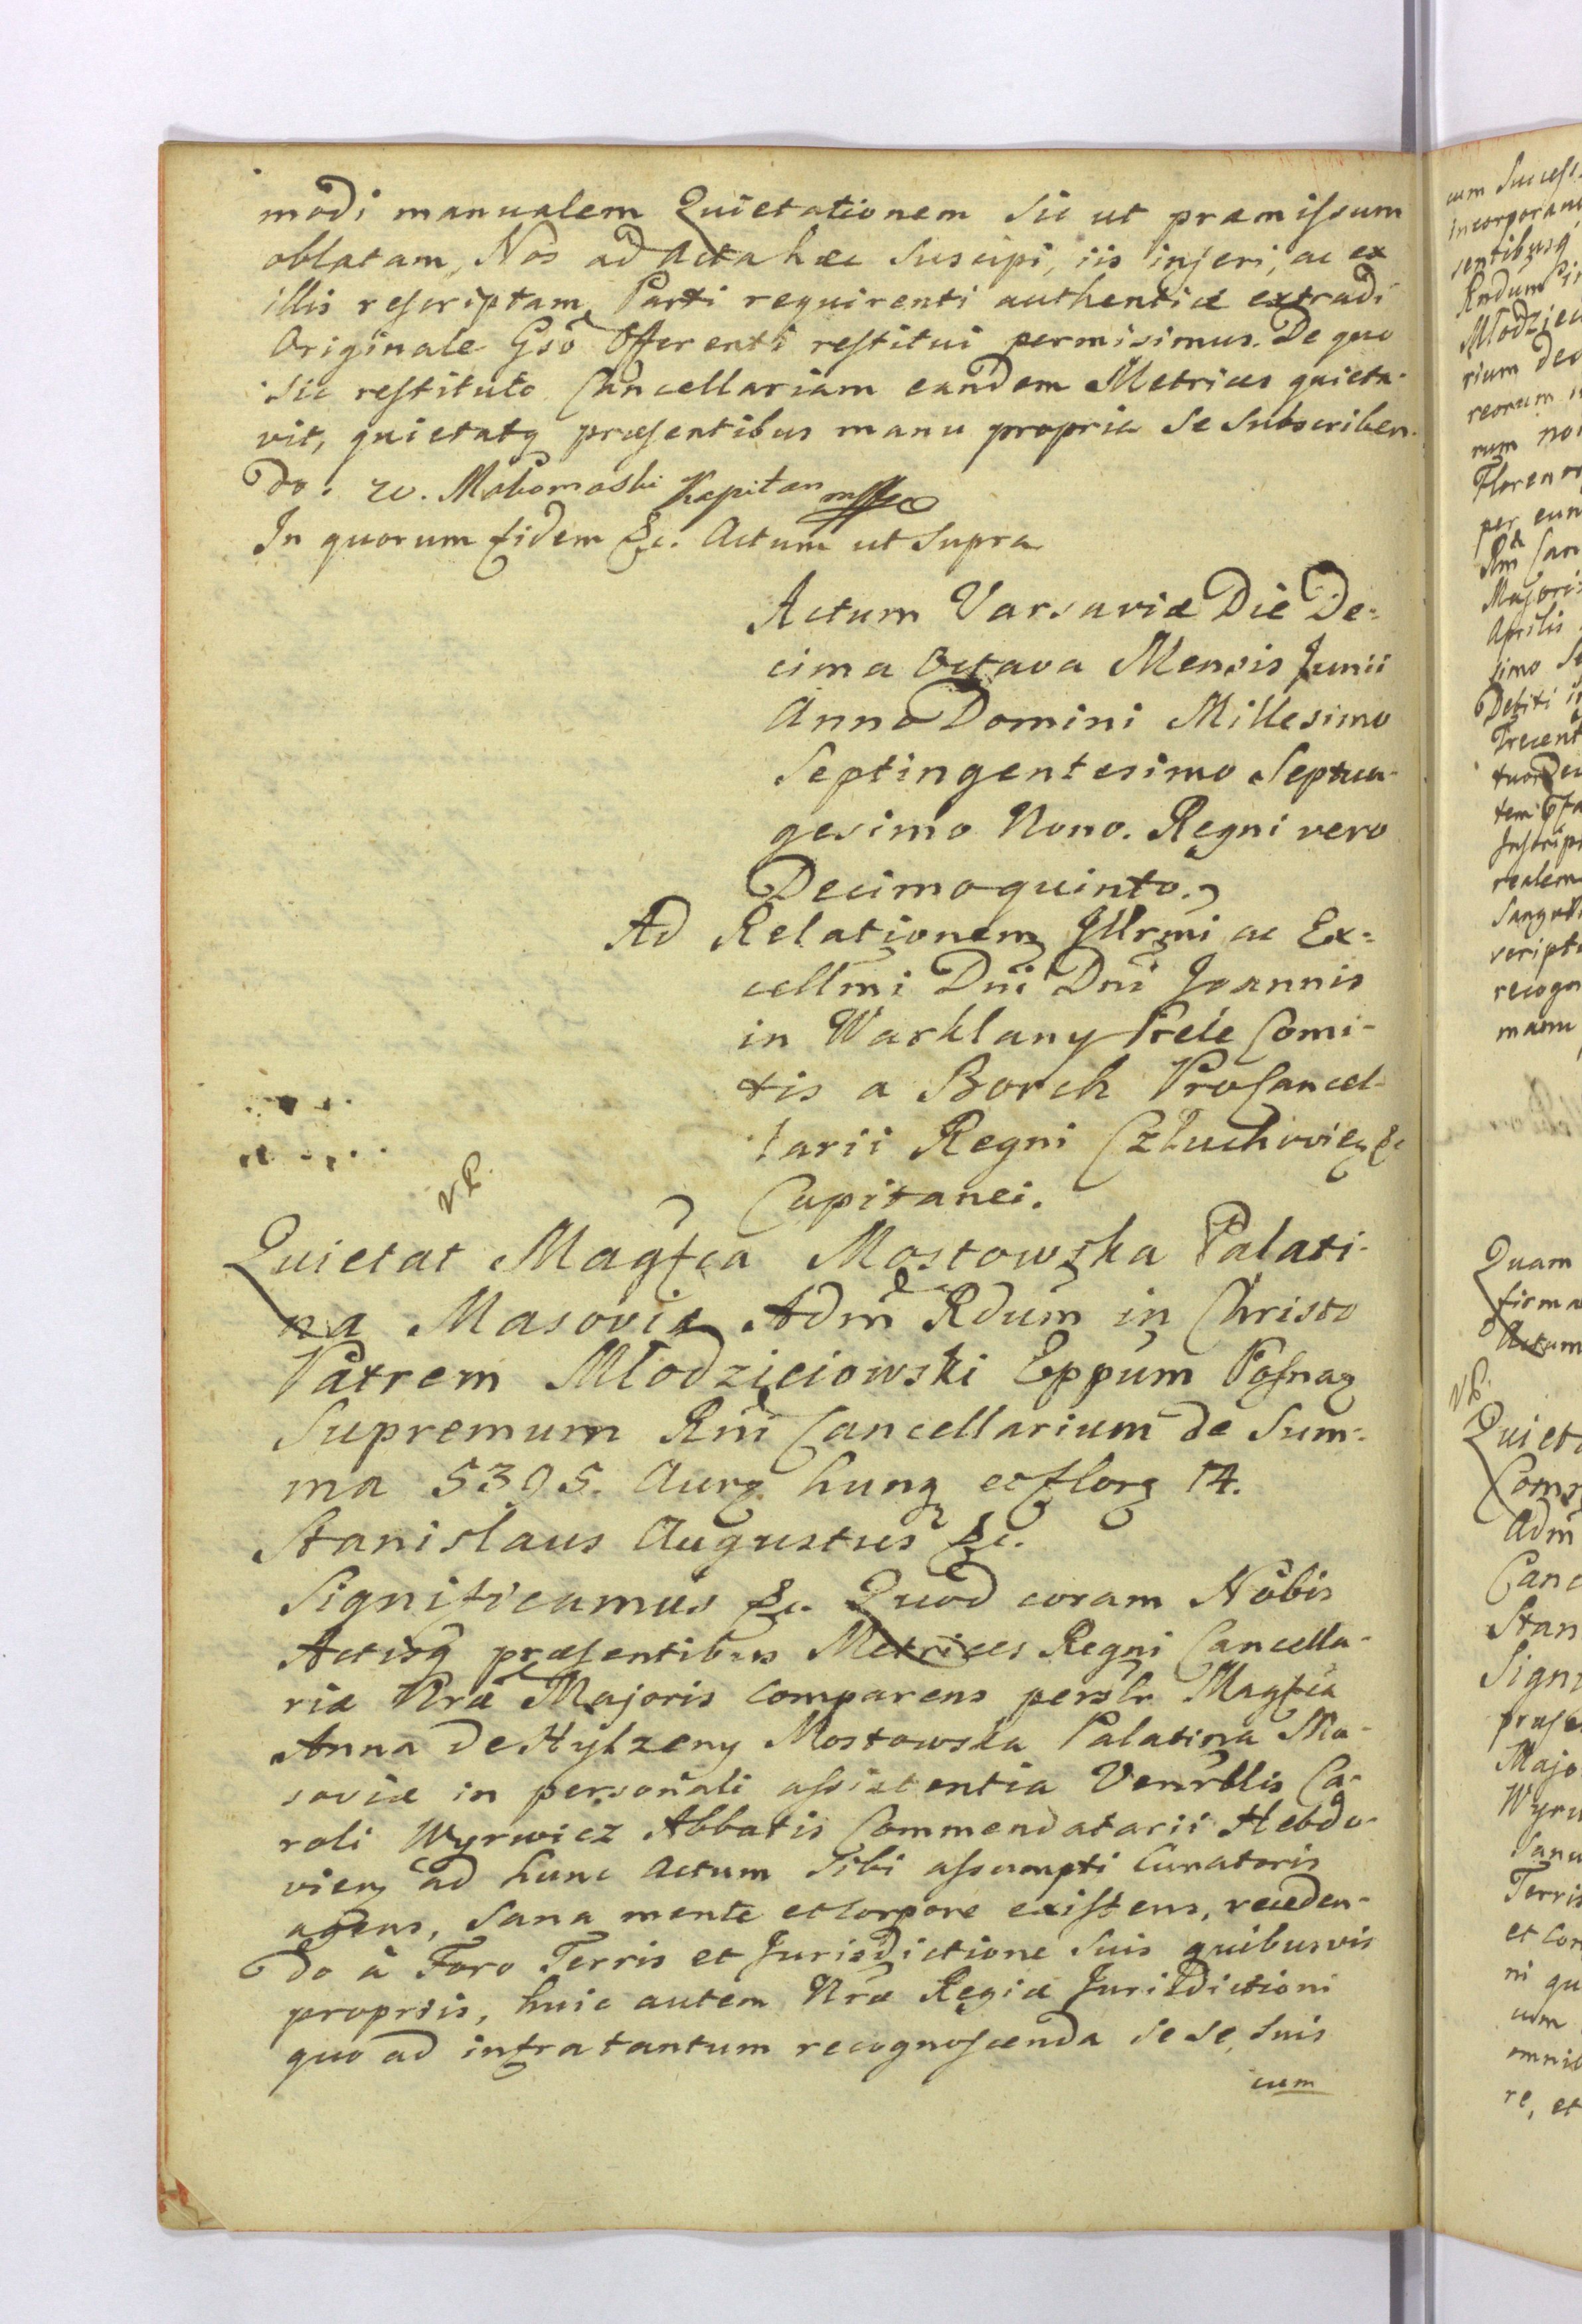 modi manualem Quietationem sic ut præmissum
oblatam, Nos ad Acta hæc suscipi, iis inseri, ac ex
illis rescriptam Parti requirenti authentice extradi
Originale Gsō Offerenti restitui permisimus. De quo
sic restituto Cancellariam eandem Metrices quieta-
vit, quietatq præsentibus manu propria se subscriben-
do. w. Mokomaski Kapitan mp
In quorum fidem &c. Actum ut supra
Actum Varsaviæ Die De-
cima Octava Mensis Junii
Anno Domini Millesimo
Septingentesimo Septua-
gesimo Nono. Regni vero
Decimoquinto.
Ad Relationem Jllrmi ac Ex-
cellmi Dni Dni Joannis
in Warklany Prele Comi-
tis a Borch ProCancel-
larii Regni Człuchovien &c
Capitanei.
NP.
Quietat Magfca Mostowska Palati-
na Masoviæ Adm Rdum in Christo
Patrem Młodzieiowski Eppum Posnan
Supremum Rni Cancellarium de Sum-
ma 5395. Aur. hung et flor 14.
Stanislaus Augustus &c.
Significamus &c. Quod coram Nobis
Actisq præsentibus Metrices Regni Cancella-
riæ Nræ Majoris comparens persr Magfca
Anna de Hylzeny Mostowska Palatina Ma-
soviæ in personali assistentia Venrblis Ca-
roli Wyrwicz Abbatis Commendatarii Hebdo-
vien ad hunc Actum sibi assumpti Curatoris
agens, sana mente et corpore existens, receden-
do à Foro Terris et Jurisdictione suis quibusvis
propriis, huic autem Nræ Regiæ Jurisdictioni
quo ad infra tantum recognoscenda sese, suis
cum